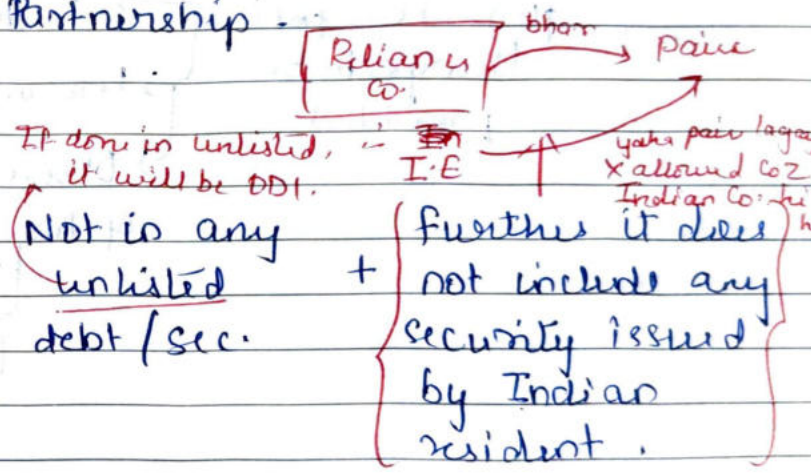 Partnership.
Relian
Co.
bhar
Paise
If done in unlisted,
it will be ODI.
I.E
yaha
X allowed Coz
Indian Co.
Not in any
unlisted
debt / sec.
+
further it does
not include any
security issued
by Indian
resident.